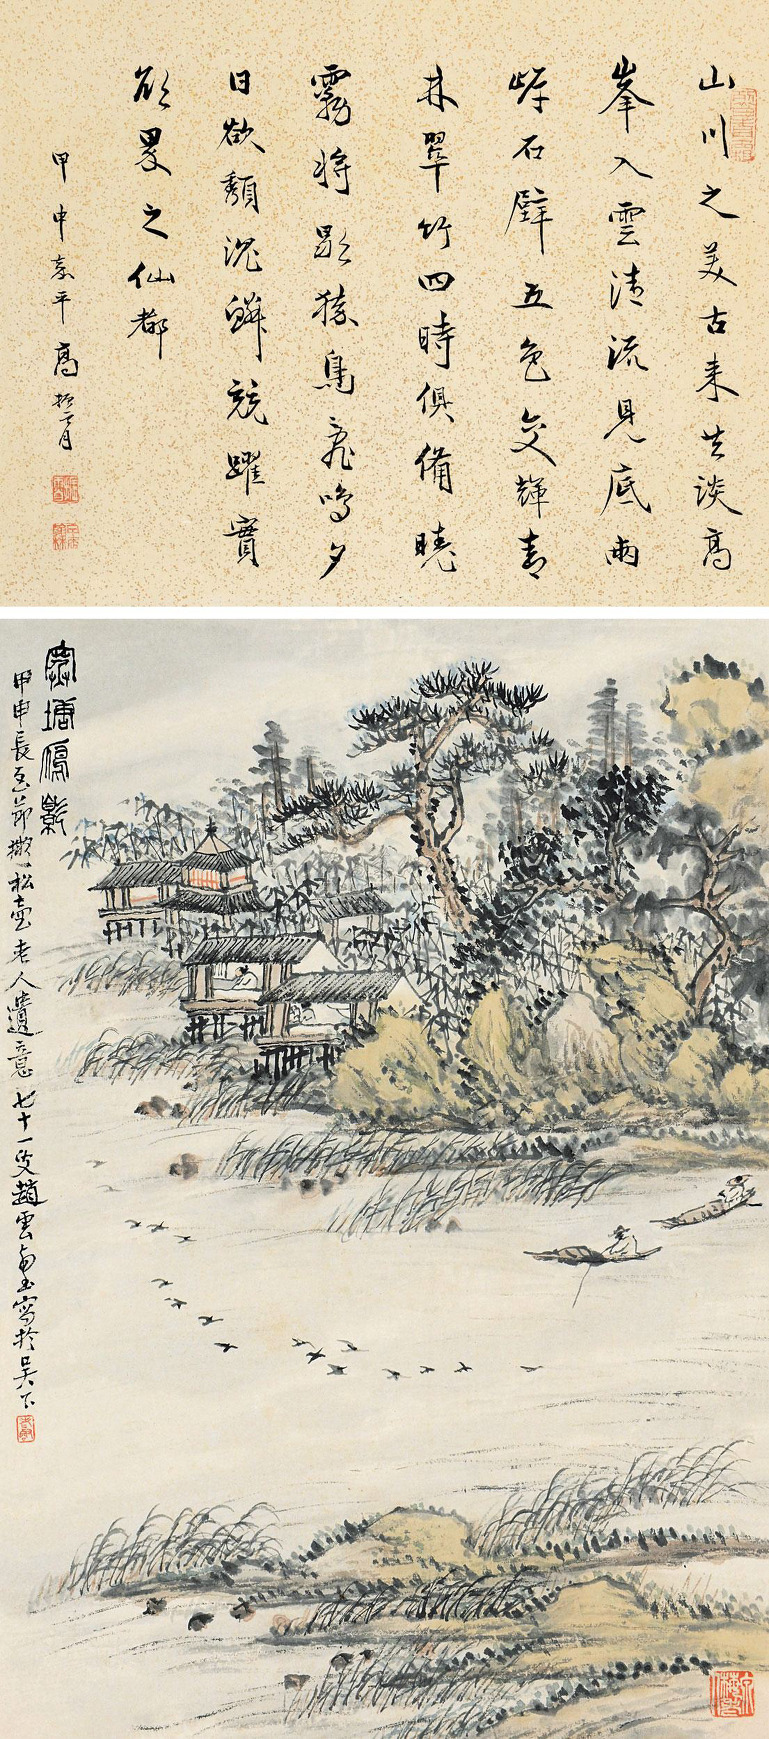 山川之美古来共談高
峯入雲清流見底兩
岸石壁五色交輝青
林翠竹四時俱備曉
霧將歇猿鳥亂鳴夕
日欲頹沉鱗競躍實
欲界之仙都
甲申嘉平高振霄
寒塘雁影
甲申長至節撫松壺老人遺意七十一叟趙雲壑寫於吳下